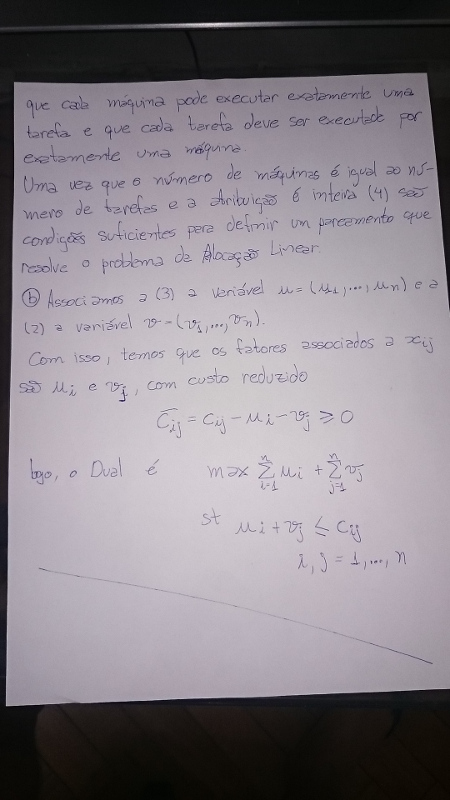 que cada máquina pode executar exatamente uma
tarefa e que cada tarefa deve ser executada por
exatamente uma máquina.
Uma vez que o número de máquinas é igual ao nú-
mero de tarefas e a atribuição é inteira (4) são
condições suficientes para definir um pareamento que
resolve o problema de Alocação Linear.
(b) Associamos a (3) a variável u = (u₁, ..., uₙ) e a
(2) a variável v = (v₁, ..., vₙ).
Com isso, temos que os fatores associados a xᵢⱼ
são uᵢ e vⱼ, com custo reduzido
c̄ᵢⱼ = cᵢⱼ - uᵢ - vⱼ ≥ 0
logo, o Dual é max ∑ⁿᵢ₌₁ uᵢ + ∑ⁿⱼ₌₁ vⱼ
st uᵢ + vⱼ ≤ cᵢⱼ
i, j = 1, ..., n